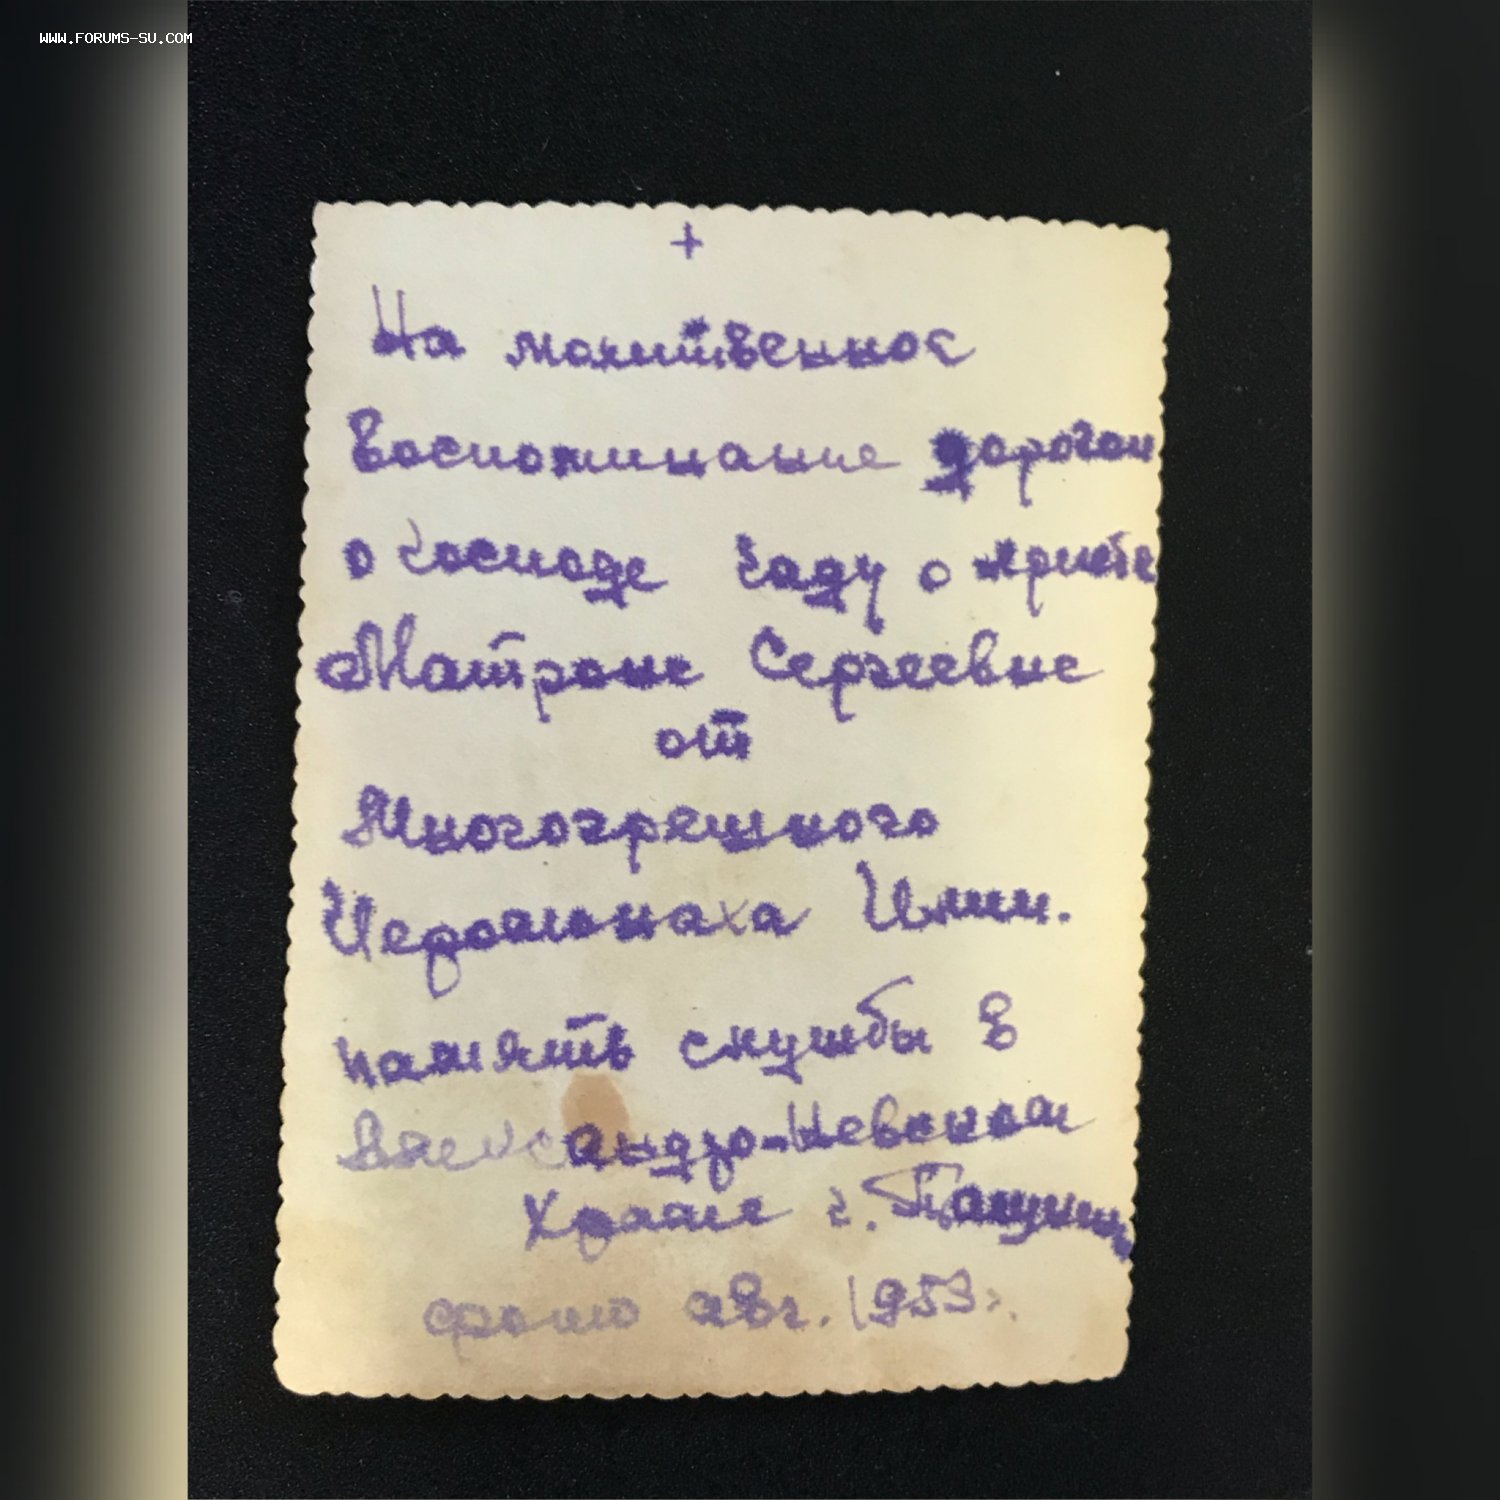 WWW.FORUMS-SU.COM
+
На молитвенное
воспоминание дорогои
о Господе Чаду о христе
Матроне Сергеевне
от
Многогрешного
Иеромонаха Илии.
память службы в
Александро-Невском
Храме г.
фото авг. 1953г.